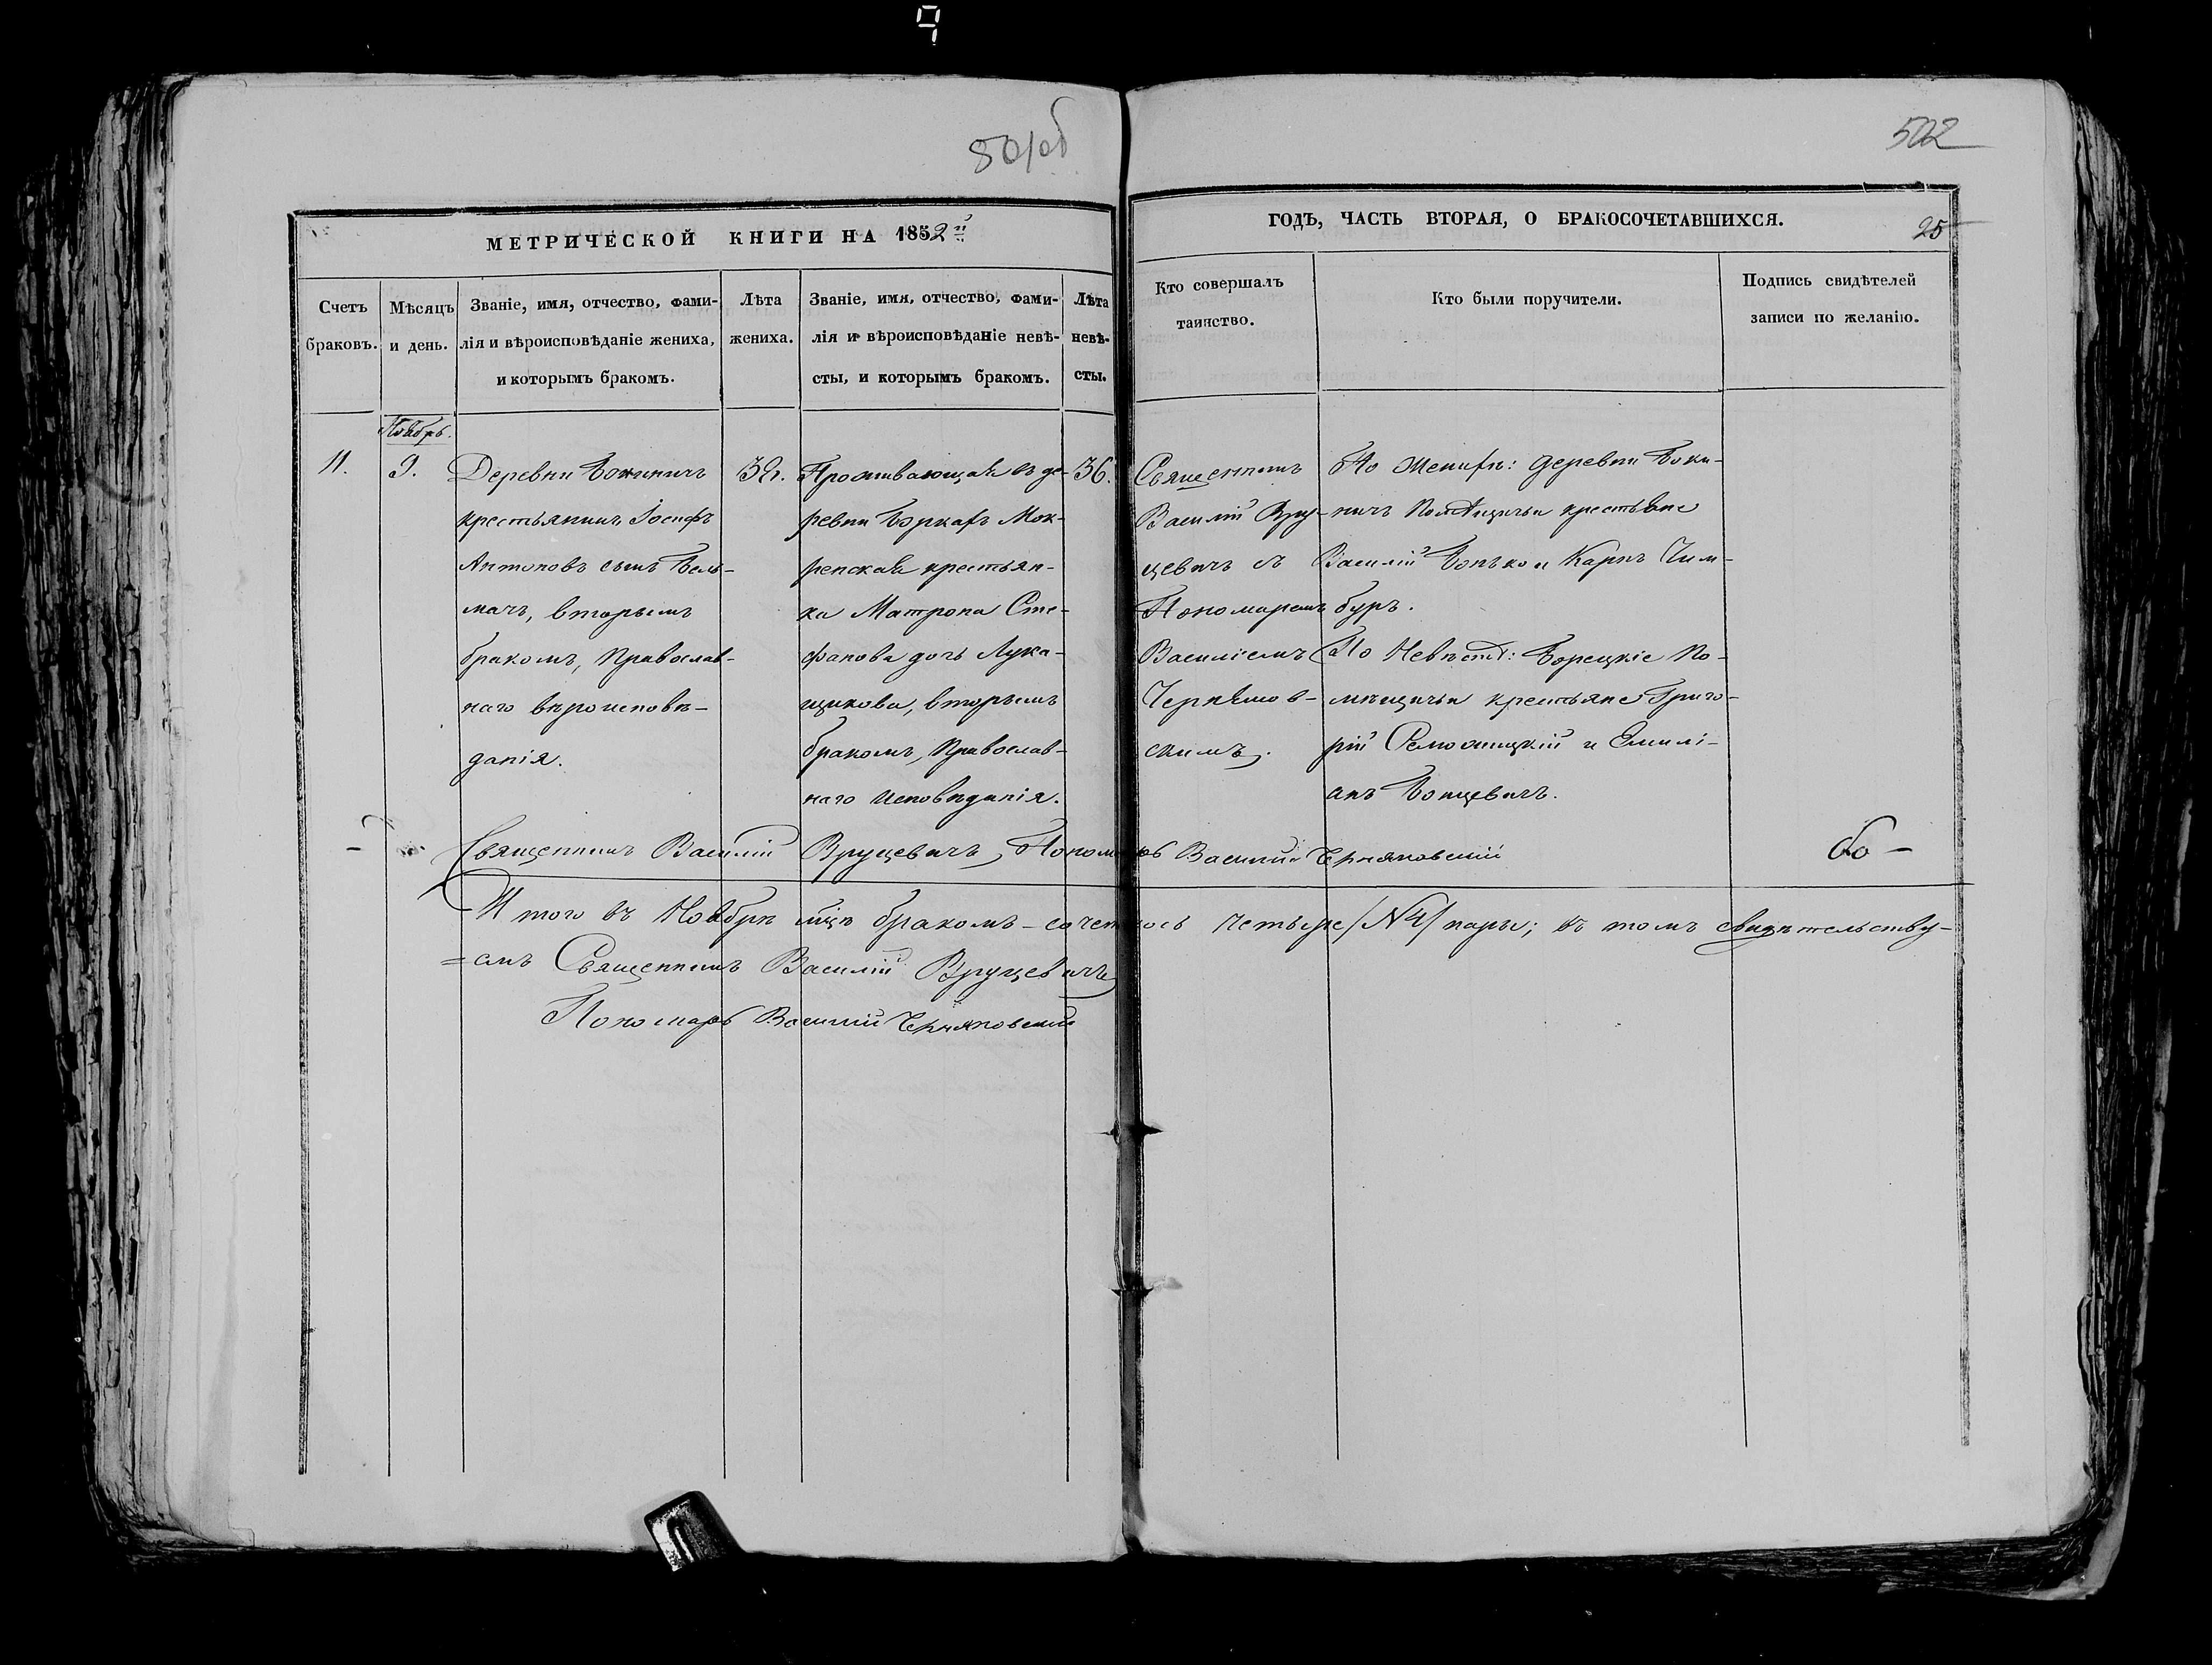 501об
502
МЕТРИЧЕСКОЙ КНИГИ НА 1852й
ГОДЪ, ЧАСТЬ ВТОРАЯ, О БРАКОСОЧЕТАВШИХСЯ.
25
Счетъ
браковъ.
Мѣсяцъ
и день.
Званіе, имя, отчество, фами-
лія и вѣроисповѣданіе жениха,
и которымъ бракомъ.
Лѣта
жениха.
Званіе, имя, отчество, фами-
лія и вѣроисповѣданіе невѣ-
сты, и которымъ бракомъ.
Лѣта
невѣ-
сты.
Кто совершалъ
таинство.
Кто были поручители.
Подпись свидѣтелей
записи по желанію.
Ноябрь.
11.
9.
Деревни
крестьянинъ Іосифъ
Антоновъ сынъ Бель-
мачъ, вторымъ
бракомъ, Православ-
наго вѣроисповѣ-
данія.
Проживающая въ де-
ревни Мок-
ренская крестьян-
ка Матрона Сте-
фанова дочь Лука-
щикова, вторымъ
бракомъ, Православ-
наго исповѣданія.
36.
Священникъ
Василій Вру-
цевичъ съ
Пономаремъ
Василіемъ
Черняков-
скимъ.
По Женихѣ: деревни Боки-
ничъ Помѣщичьи крестьяне
Василій Бонько и Карпъ Чим-
буръ.
По Невѣстѣ: Борецкіе По-
мѣщичьи крестьяне Григо-
рій и Емилі-
анъ Бонцевичъ.
Священникъ Василій Вруцевичъ, Пономарь Василій Черняковскій
Итого въ Ноябрѣ мцѣ бракомъ-сочеталось четыре /№4/ пары; въ томъ свидѣтельству-
=емъ Священникъ Василій Вруцевичъ
Пономарь Василій Черняковскій